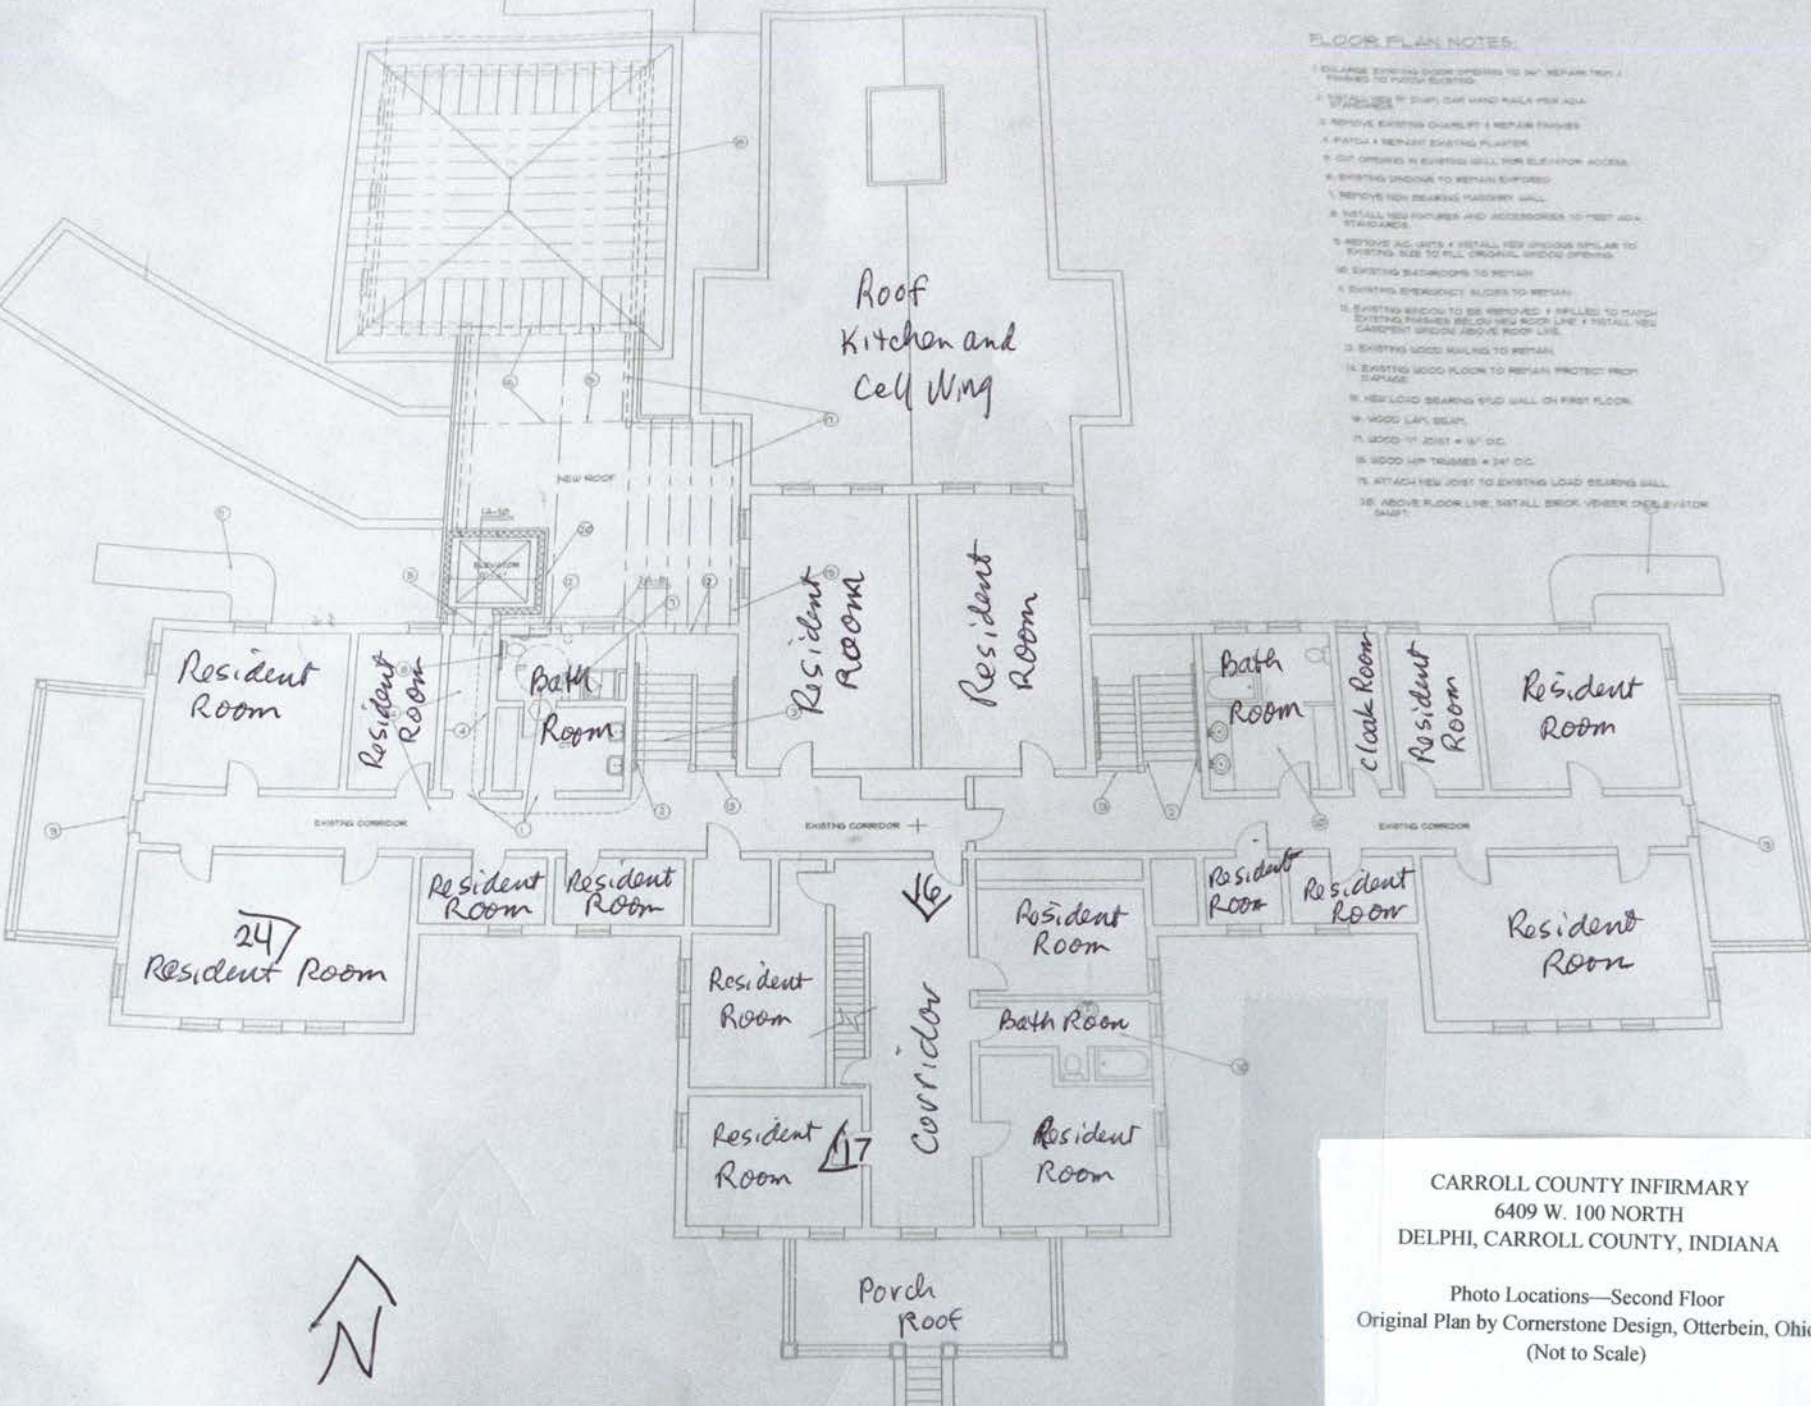 FLOOR PLAN NOTES:
1. ENLARGE EXISTING DOOR OPENING TO 36". REPAIR TRIM &
FINISHES TO MATCH EXISTING.
STANDARDS.
3. REMOVE EXISTING CHAIRLIFT & REPAIR FINISHES
4. PATCH & REPAINT EXISTING PLASTER
5. CUT OPENING IN EXISTING WALL FOR ELEVATOR ACCESS
6. EXISTING WINDOWS TO REMAIN EXPOSED
7. REMOVE NON BEARING MASONRY WALL
8. INSTALL NEW FIXTURES AND ACCESSORIES TO MEET ADA
STANDARDS.
9. REMOVE A.C. UNITS & INSTALL NEW WINDOWS SIMILAR TO
EXISTING SIZE TO FILL ORIGINAL WINDOW OPENING
10. EXISTING BATHROOMS TO REMAIN
11. EXISTING EMERGENCY SLIDES TO REMAIN
12. EXISTING WINDOW TO BE REMOVED & INFILLED TO MATCH
EXISTING FINISHES BELOW NEW ROOF LINE & INSTALL NEW
CASEMENT WINDOW ABOVE ROOF LINE.
13. EXISTING WOOD RAILING TO REMAIN
14. EXISTING WOOD FLOOR TO REMAIN. PROTECT FROM
DAMAGE
15. NEW LOAD BEARING STUD WALL ON FIRST FLOOR
16. WOOD LAM. BEAM
17. WOOD "I" JOIST @ 16" O.C.
18. WOOD HIP TRUSSES @ 24" O.C.
19. ATTACH NEW JOIST TO EXISTING LOAD BEARING WALL
20. ABOVE FLOOR LINE, INSTALL BRICK VENEER ON ELEVATOR
SHAFT.
Roof
Kitchen and
Cell Wing
NEW ROOF
ELEVATOR
20
Resident
Room
Resident
Room
Bath
Room
Resident
Room
Resident
Room
Bath
Room
Cloak Room
Resident
Room
Resident
Room
EXISTING CORRIDOR
EXISTING CORRIDOR
EXISTING CORRIDOR
Resident
Room
Resident
Room
16
Resident
Room
Resident
Room
Resident
Room
24
Resident Room
Resident
Room
Resident
Room
Corridor
Bath Room
Resident
Room
17
Resident
Room
Porch
Roof
N
CARROLL COUNTY INFIRMARY
6409 W. 100 NORTH
DELPHI, CARROLL COUNTY, INDIANA
Photo Locations—Second Floor
Original Plan by Cornerstone Design, Otterbein, Ohio
(Not to Scale)